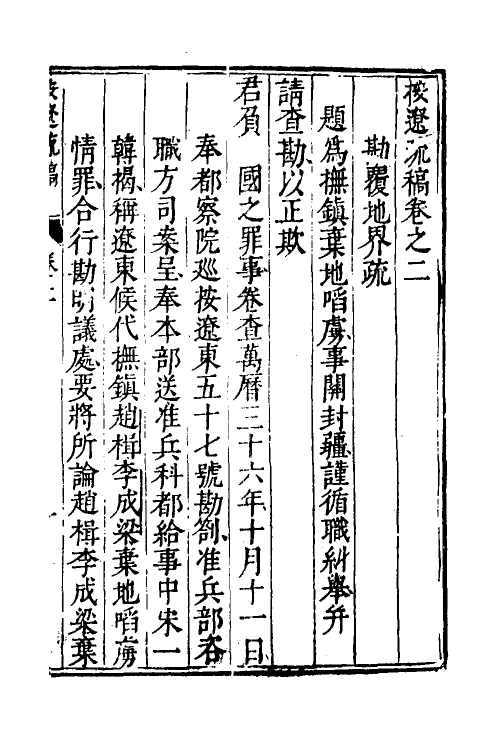 按遼疏稿卷之二
勘覆地界疏
題爲撫鎮棄地啗虜事關封疆謹循職糾舉并
請查勘以正欺
君負國之罪事卷查萬曆三十六年十月十一日
奉都察院巡按遼東五十七號勘劄准兵部咨
職方司案呈奉本部送准兵科都給事中宋一
韓揭稱遼東候代撫鎮趙楫李成梁棄地啗虜
情罪合行勘明議處要將所論趙楫李成梁棄
按遼疏稿 卷二 一